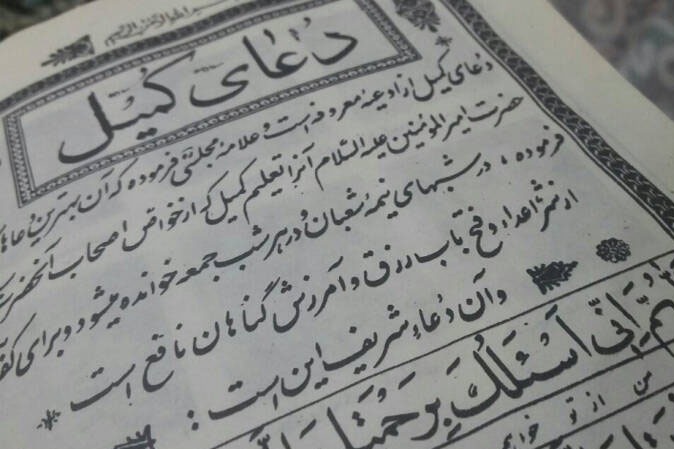 بسم الله الرحمن الرحیم
دعای کمیل
دعای کمیل از ادعیه معروفه است و علامه مجلسی فرموده که آن بهترین دعاها
حضرت امیرالمؤمنین علیه السلام آنرا تعلیم کمیل که از خواص اصحاب آنحضرت
فرموده، در شبهای نیمه شعبان و در هر شب جمعه خوانده میشود و برای
از شر اعداء و فتح باب رزق و آمرزش گناهان نافع است
و آن دعاء شریف این است:
اِنّی اَسْئَلُکَ بِرَحْمَتِکَ
من از تو